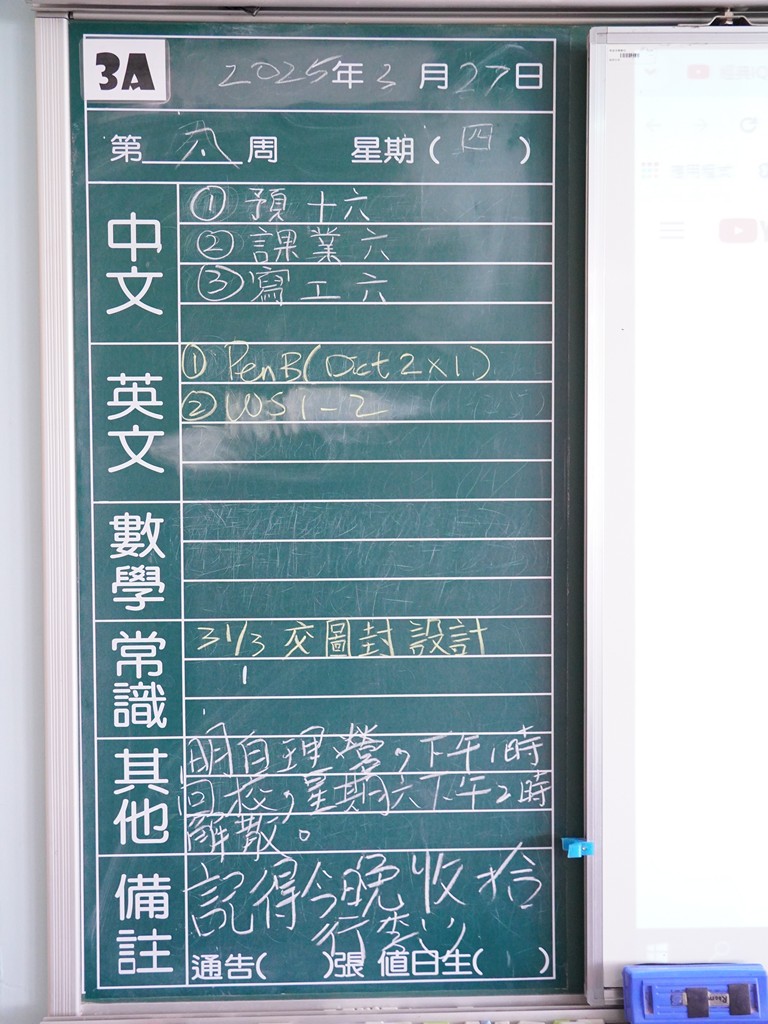 3A
2025年3月27日
第 六 周 星期(四)
中文
① 預十六
② 課業六
③ 寫工六
英文
① Pen B (Dict 2 x 1)
② WS 1-2
數學
常識
31/3 交圖封設計
其他
明自理營,下午1時
回校,星期六下午2時
解散。
備註
記得今晚收拾
行李
通告( )張 值日生( )